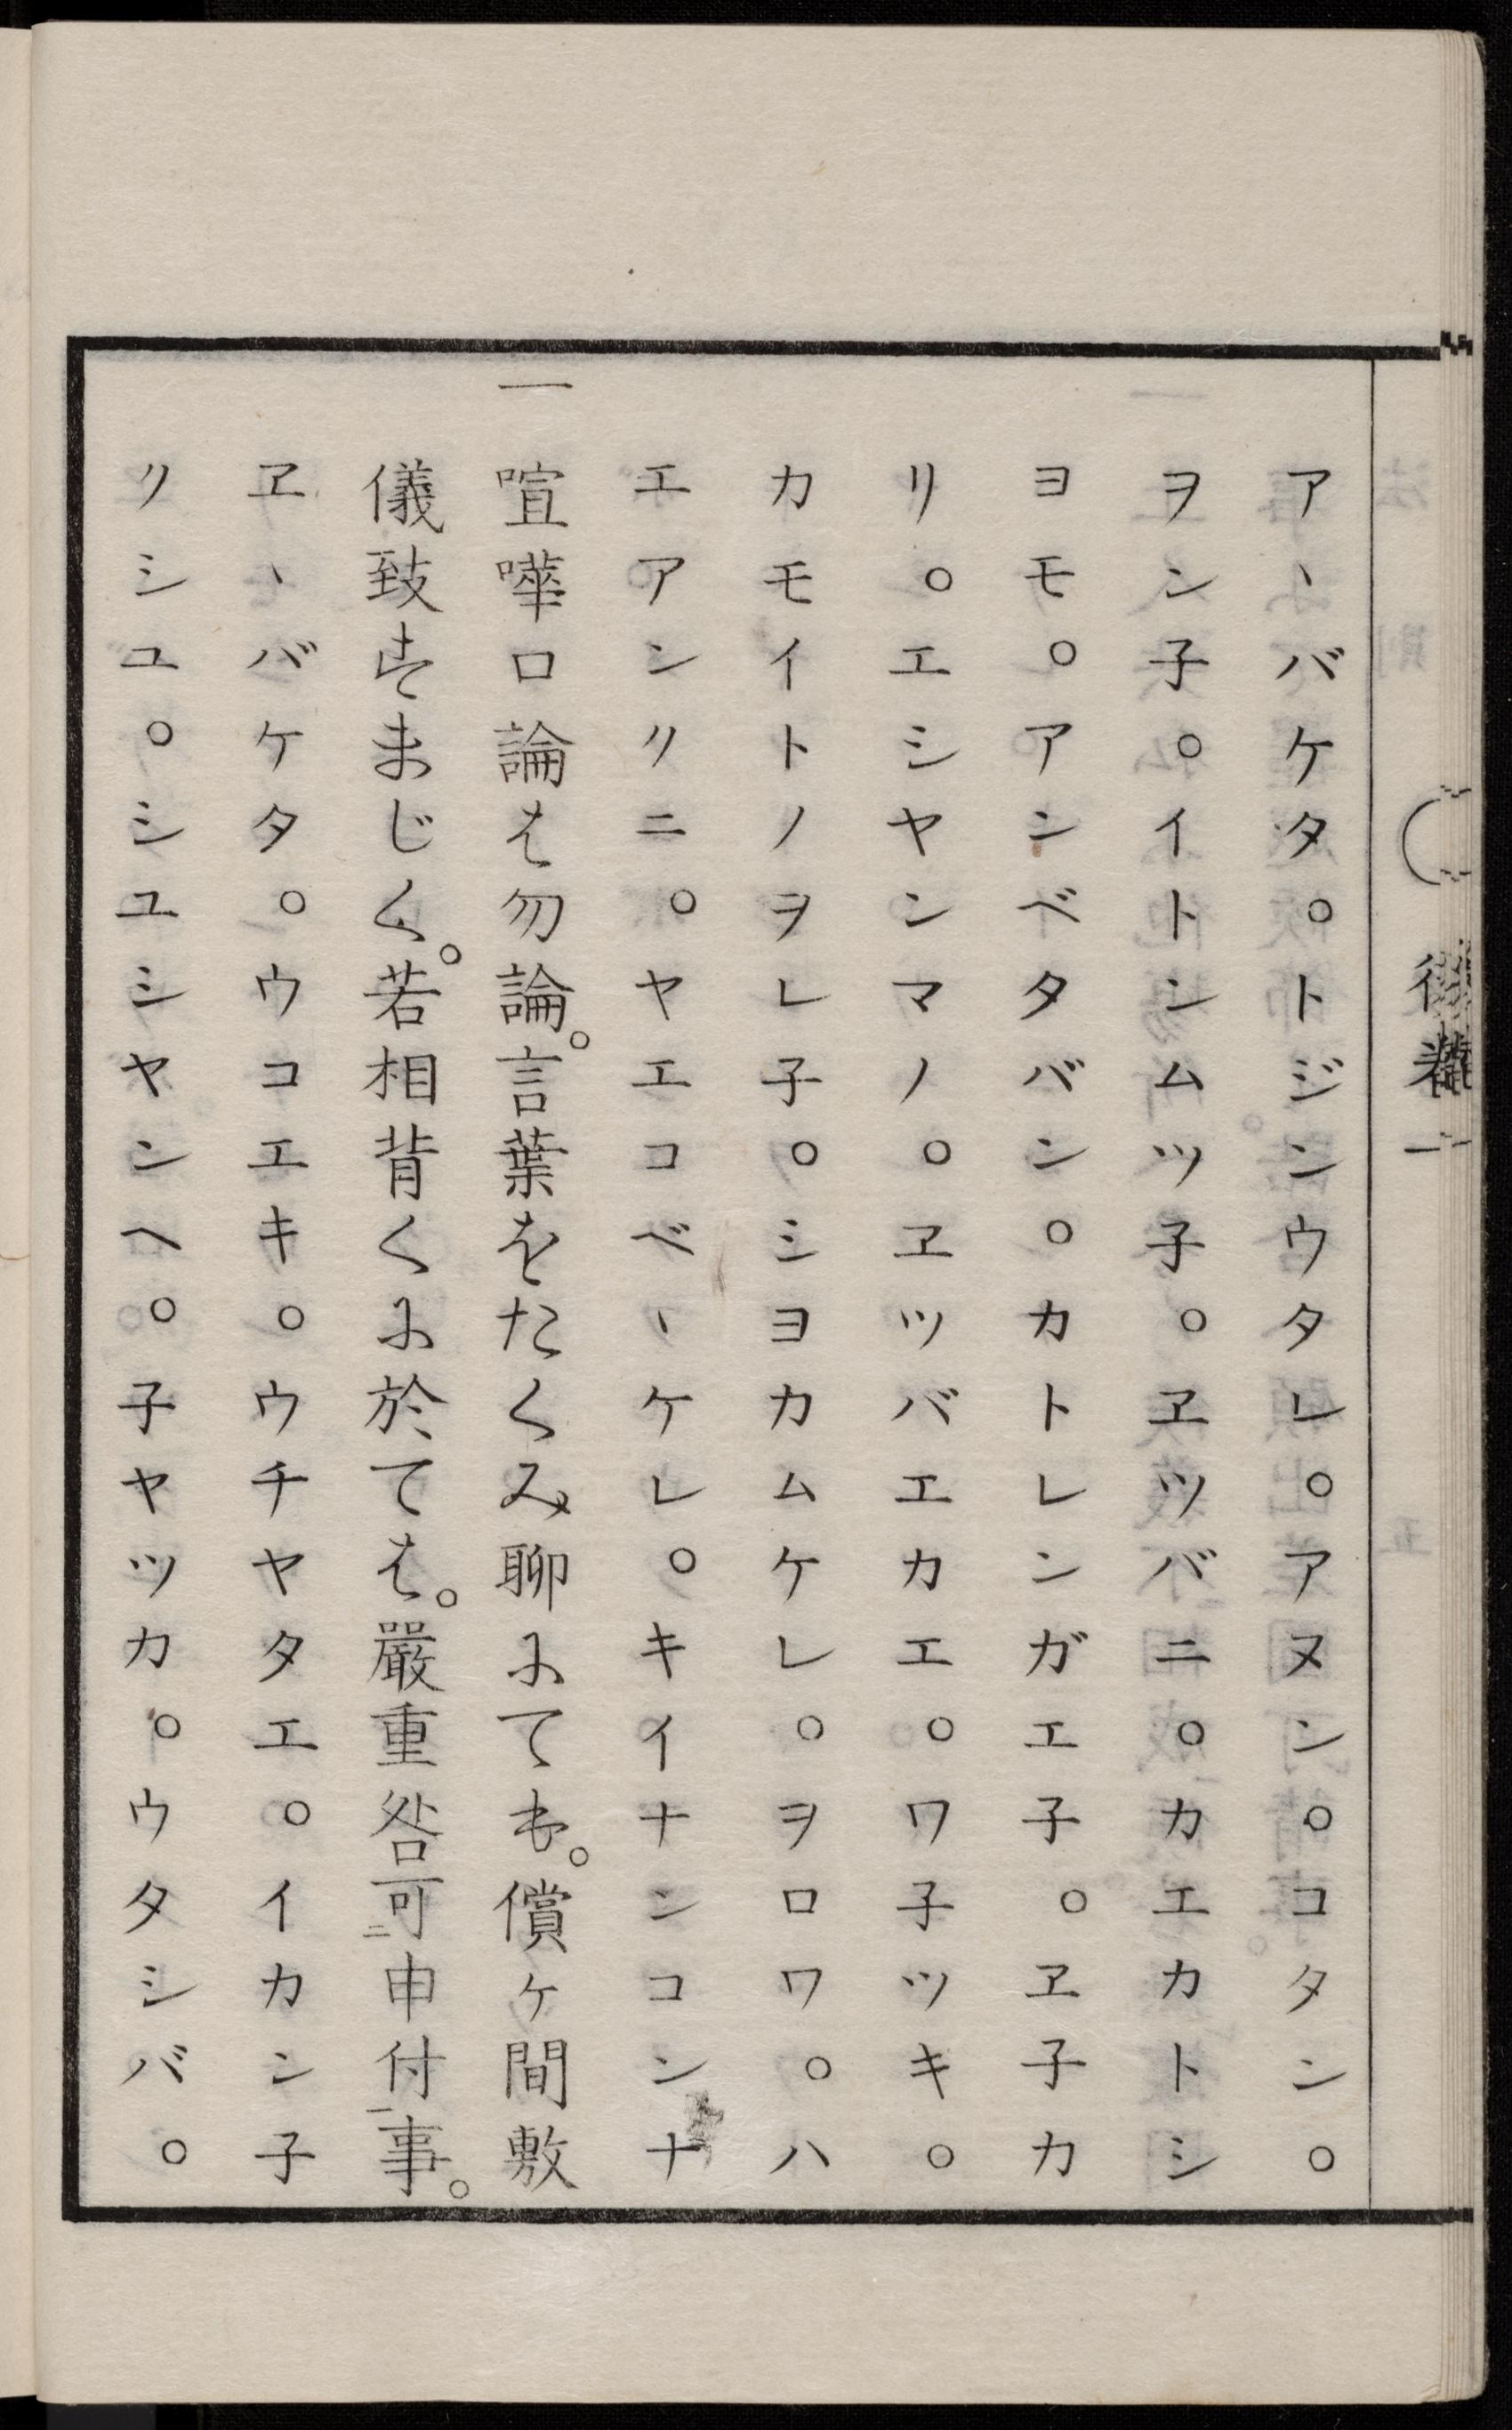 ア丶バケタ。トジンウタレ。アヌン。コタン。
ヲン子。イトンムツ子。ヱツバニ。カエカトシ
ヨモ。アンベタバン。カトレンガエ子。ヱ子カ
リ。エシヤンマノ。ヱツバエカエ。ワ子ツキ。
カモイトノヲレ子。シヨカムケレ。ヲロワ。ハ
エアンクニ。ヤエコベ丶ケレ。キイナンコンナ
一喧嘩口論は勿論。言葉をたくみ聊にても。償ヶ間敷
儀致すまじく。若相背くに於ては。嚴重咎可二申付一事。
ヱ丶バケタ。ウコエキ。ウチヤタエ。イカン子
クシユ。シユシヤンヘ。子ヤツカ。ウタシバ。